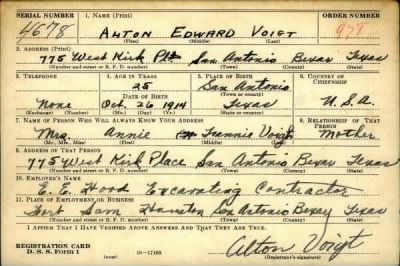 SERIAL NUMBER 1. NAME (Print) ORDER NUMBER
4678 ALTON EDWARD VOIGT 978
(First) (Middle) (Last)
2. ADDRESS (Print)
775 West Kirk Pl San Antonio Bexar Texas
(Number and street or R. F. D. number) (Town) (County) (State)
3. TELEPHONE 4. AGE IN YEARS 5. PLACE OF BIRTH 6. COUNTRY OF CITIZENSHIP
25 San Antonio
DATE OF BIRTH (Town or county)
None Oct. 26 1914 Texas U.S.A.
(Exchange) (No.) (Mo.) (Day) (Yr.) (State or country)
7. NAME OF PERSON WHO WILL ALWAYS KNOW YOUR ADDRESS 8. RELATIONSHIP OF THAT PERSON
Mrs. Annie Voigt Mother
(Mr., Mrs., Miss) (First) (Middle) (Last)
9. ADDRESS OF THAT PERSON
775 West Kirk Place San Antonio Bexar Texas
(Number and street or R. F. D. number) (Town) (County) (State)
10. EMPLOYER'S NAME
E. E. Hood Excavating Contractor
11. PLACE OF EMPLOYMENT OR BUSINESS
Fort Sam Houston San Antonio Bexar Texas
(Number and street or R. F. D. number) (Town) (County) (State)
I AFFIRM THAT I HAVE VERIFIED ABOVE ANSWERS AND THAT THEY ARE TRUE.
REGISTRATION CARD
D. S. S. Form 1 16-17105 Alton Voigt
(Registrant's signature)